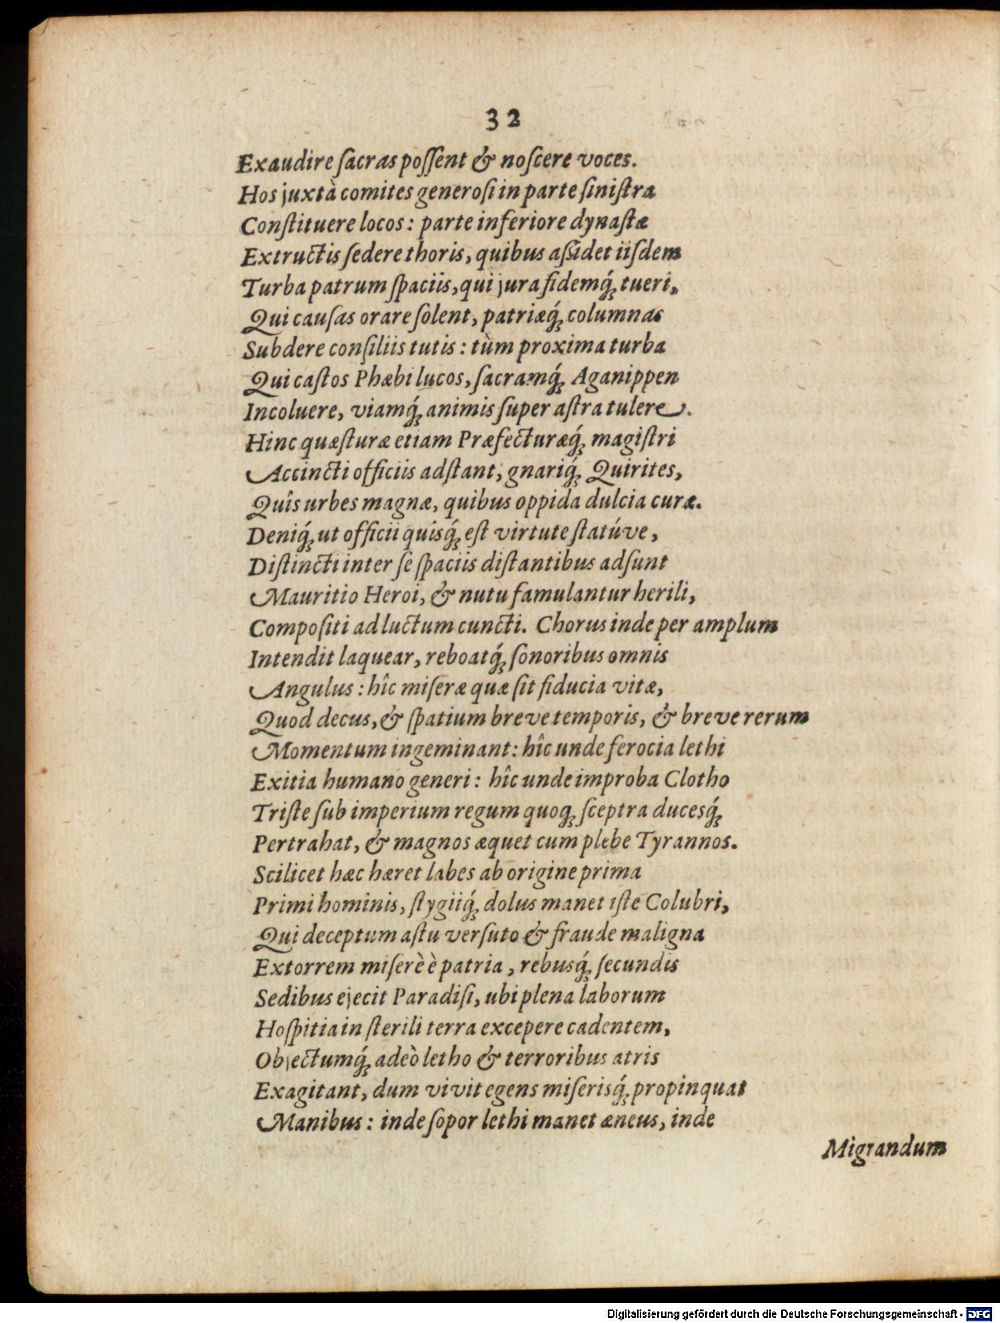 32
Exaudire ſacras poſſent & noſcere voces.
Hos juxtà comites generoſi in parte ſiniſtra
Conſtituere locos: parte inferiore dynaſtæ
Extructis ſedere thoris, quibus aßidet iiſdem
Turba patrum ſpaciis, qui jura fidemq́; tueri,
Qui cauſas orare ſolent, patriæq́; columnas
Subdere conſiliis tutis: tùm proxima turba
Qui caſtos Phæbi lucos, ſacramq́; Aganippen
Incoluere, viamq́; animis ſuper aſtra tulere.
Hinc quæſturæ etiam Præfecturæq́; magiſtri
Accincti officiis adſtant, gnariq́; Quirites,
Quîs urbes magnæ, quibus oppida dulcia curæ.
Deniq́; ut officii quisq́; eſt virtute ſtatúve,
Diſtincti inter ſe ſpaciis diſtantibus adſunt
Mauritio Heroi, & nutu famulantur herili,
Compoſiti ad luctum cuncti. Chorus inde per amplum
Intendit laquear, reboatq́; ſonoribus omnis
Angulus: hîc miſeræ quæ ſit fiducia vitæ,
Quod decus, & ſpatium breve temporis, & breve rerum
Momentum ingeminant: hîc unde ferocia lethi
Exitia humano generi: hîc unde improba Clotho
Triſte ſub imperium regum quoq; ſceptra ducesq́;
Pertrahat, & magnos æquet cum plebe Tyrannos.
Scilicet hæc hæret labes ab origine prima
Primi hominis, ſtygiiq́; dolus manet iſte Colubri,
Qui deceptum aſtu verſuto & fraude maligna
Extorrem miſerè è patria, rebusq́; ſecundis
Sedibus ejecit Paradiſi, ubi plena laborum
Hoſpitia in ſterili terra excepere cadentem,
Objectumq́; adeò letho & terroribus atris
Exagitant, dum vivit egens miſerisq́; propinquat
Manibus: inde ſopor lethi manet æneus, inde
Migrandum
Digitalisierung gefördert durch die Deutsche Forschungsgemeinschaft - DFG